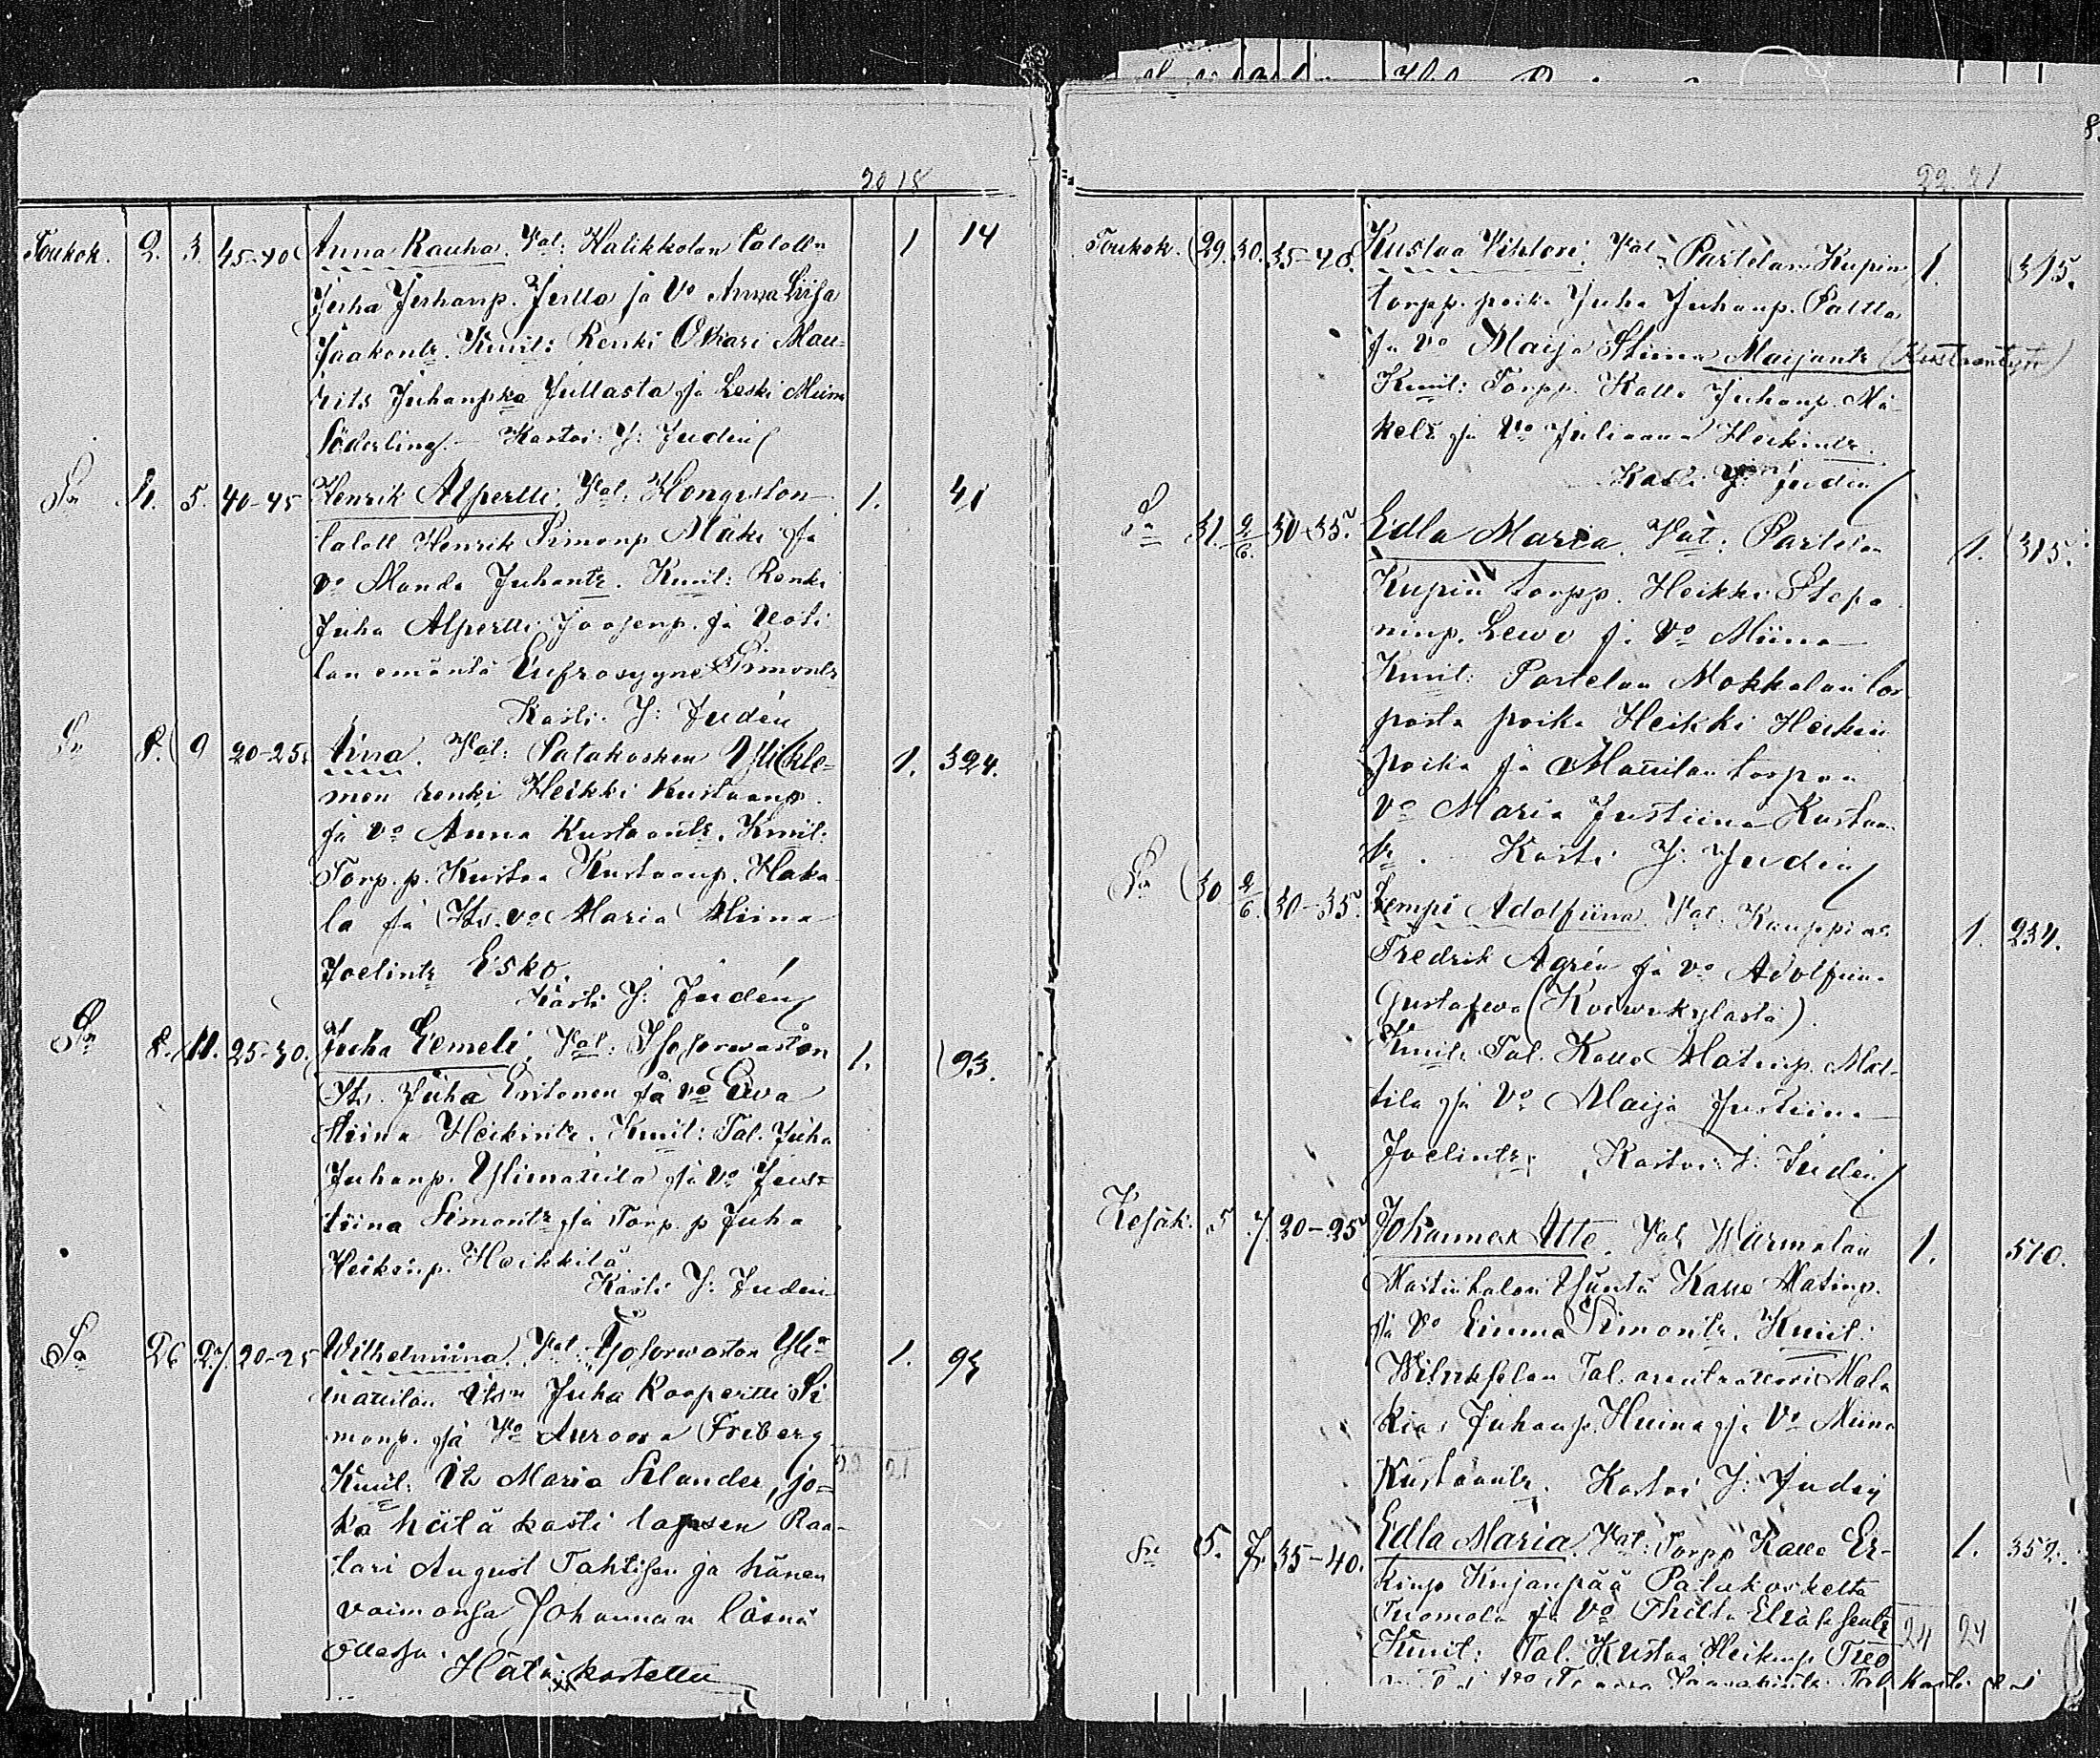 20 18
Toukok. 2. 3. 45-40 Anna Rauha. Vat: Halikkolan talolln 1 14
Juha Juhanp. Julla ja Vo Anna Liisa
Jaakontr. Kmit: Renki Oskari Mau-
rits Juhanpka Jullasta ja Leski Miina
Söderling. Kastoi J: Judén
Sa 4. 5. 40-45 Henrik Alpertti. Vat. Hongiston 1. 41
taloll Henrik Simonp Mäki ja
Vo Manda Juhantr. Kmit: Renki
Juha Alpertti Joosenp. ja Uoti
lan emäntä Eufrosyyne Simontr
Kasti. J: Judén
Sa 8. 9 20-25 Aina. Vat: Patakosken 1. 324.
men renki Heikki Kustaanp.
ja Vo Anna Kustaantr. Kmit:
Torp. p. Kustaa Kustaanp. Haka-
la ja Its. vo Maria Miina
Joelintr Esko.
Kasti J: Judén
Sa 8. 11. 25-30. Juha Eemeli. Vat: Isosorwaston 1. 93.
Its. Juha Eritonen ja vo Ewa
Stiina Heikintr. Kmit: Tal. Juha
Juhanp. Ylimattila ja Vo Just-
tiina Simontr ja Torp. p Juha
Heikinp. Heikkilä.
Kasti J: Judén
Sa 26 27 20-25 Wilhelmiina. Vat: Isosorwaston Yli- 1. 93
mattilan Itsn Juha Koopertti Si
monp. ja Vo Auroora Friberg
Kmit: Its Maria Selander, jo- 22 21
ka hätä kasti lapsen Raa-
tari August Tahtisen ja hänen
vaimonsa Johannan läsnä
ollessa.
Hätä kastettu
22. 21
Toukok. 29. 30. 35-40. Kustaa Vihtori. Vat: Partelan Kupin 1. 315.
torpp. poika Juha Juhanp. Paltta
ja Vo Maija Stiina Maijantr (Kustaantytr)
Kmit: Torpp. Kalle Juhanp. Mä-
kelä ja Vo Juliaana Heikintr.
Kasti J: Judén
Sa 31. 2/6. 30-35. Edla Maria. Vat: Partelan 1. 315.
Kupin torpp. Heikki Stepa
ninp. Lewo ja Vo Miina
Kmit: Partelan Mokkalan tor
pasta poika Heikki Heikin
poika ja Mattilan torpan
Vo Maria Justiina Kustaan
tr. Kasti J: Judén
Sa 30 2/6. 30-35. Lempi Adolfiina. Vat: Kauppias 1. 234.
Fredrik Agrén ja Vo Adolfiina
Gustafwa (Koiwukylästä).
Kmit: Tal. Kalle Matinp. Mat-
tila ja Vo Maija Justiina
Joelintr. Kastoi: J: Judén
Kesäk. 5 7. 20-25 Johannes Atte. Vat. Wärmälän 1. 510.
Martinkalan Isäntä Kalle Matinp.
ja Vo Emma Simontr. Kmit:
Tal. Mala
kias Juhanp. Huina ja Vo Miina
Kustaantr. Kastoi J: Judén
Sa 5. 7. 35-40. Edla Maria. Vat: Torpp Kalle Er- 1. 352.
kinp Kujanpää Patakoskelta
Tuomola ja Vo Thilda Elisasentr 24 24
Kmit: Tal. Kustaa Heikinp